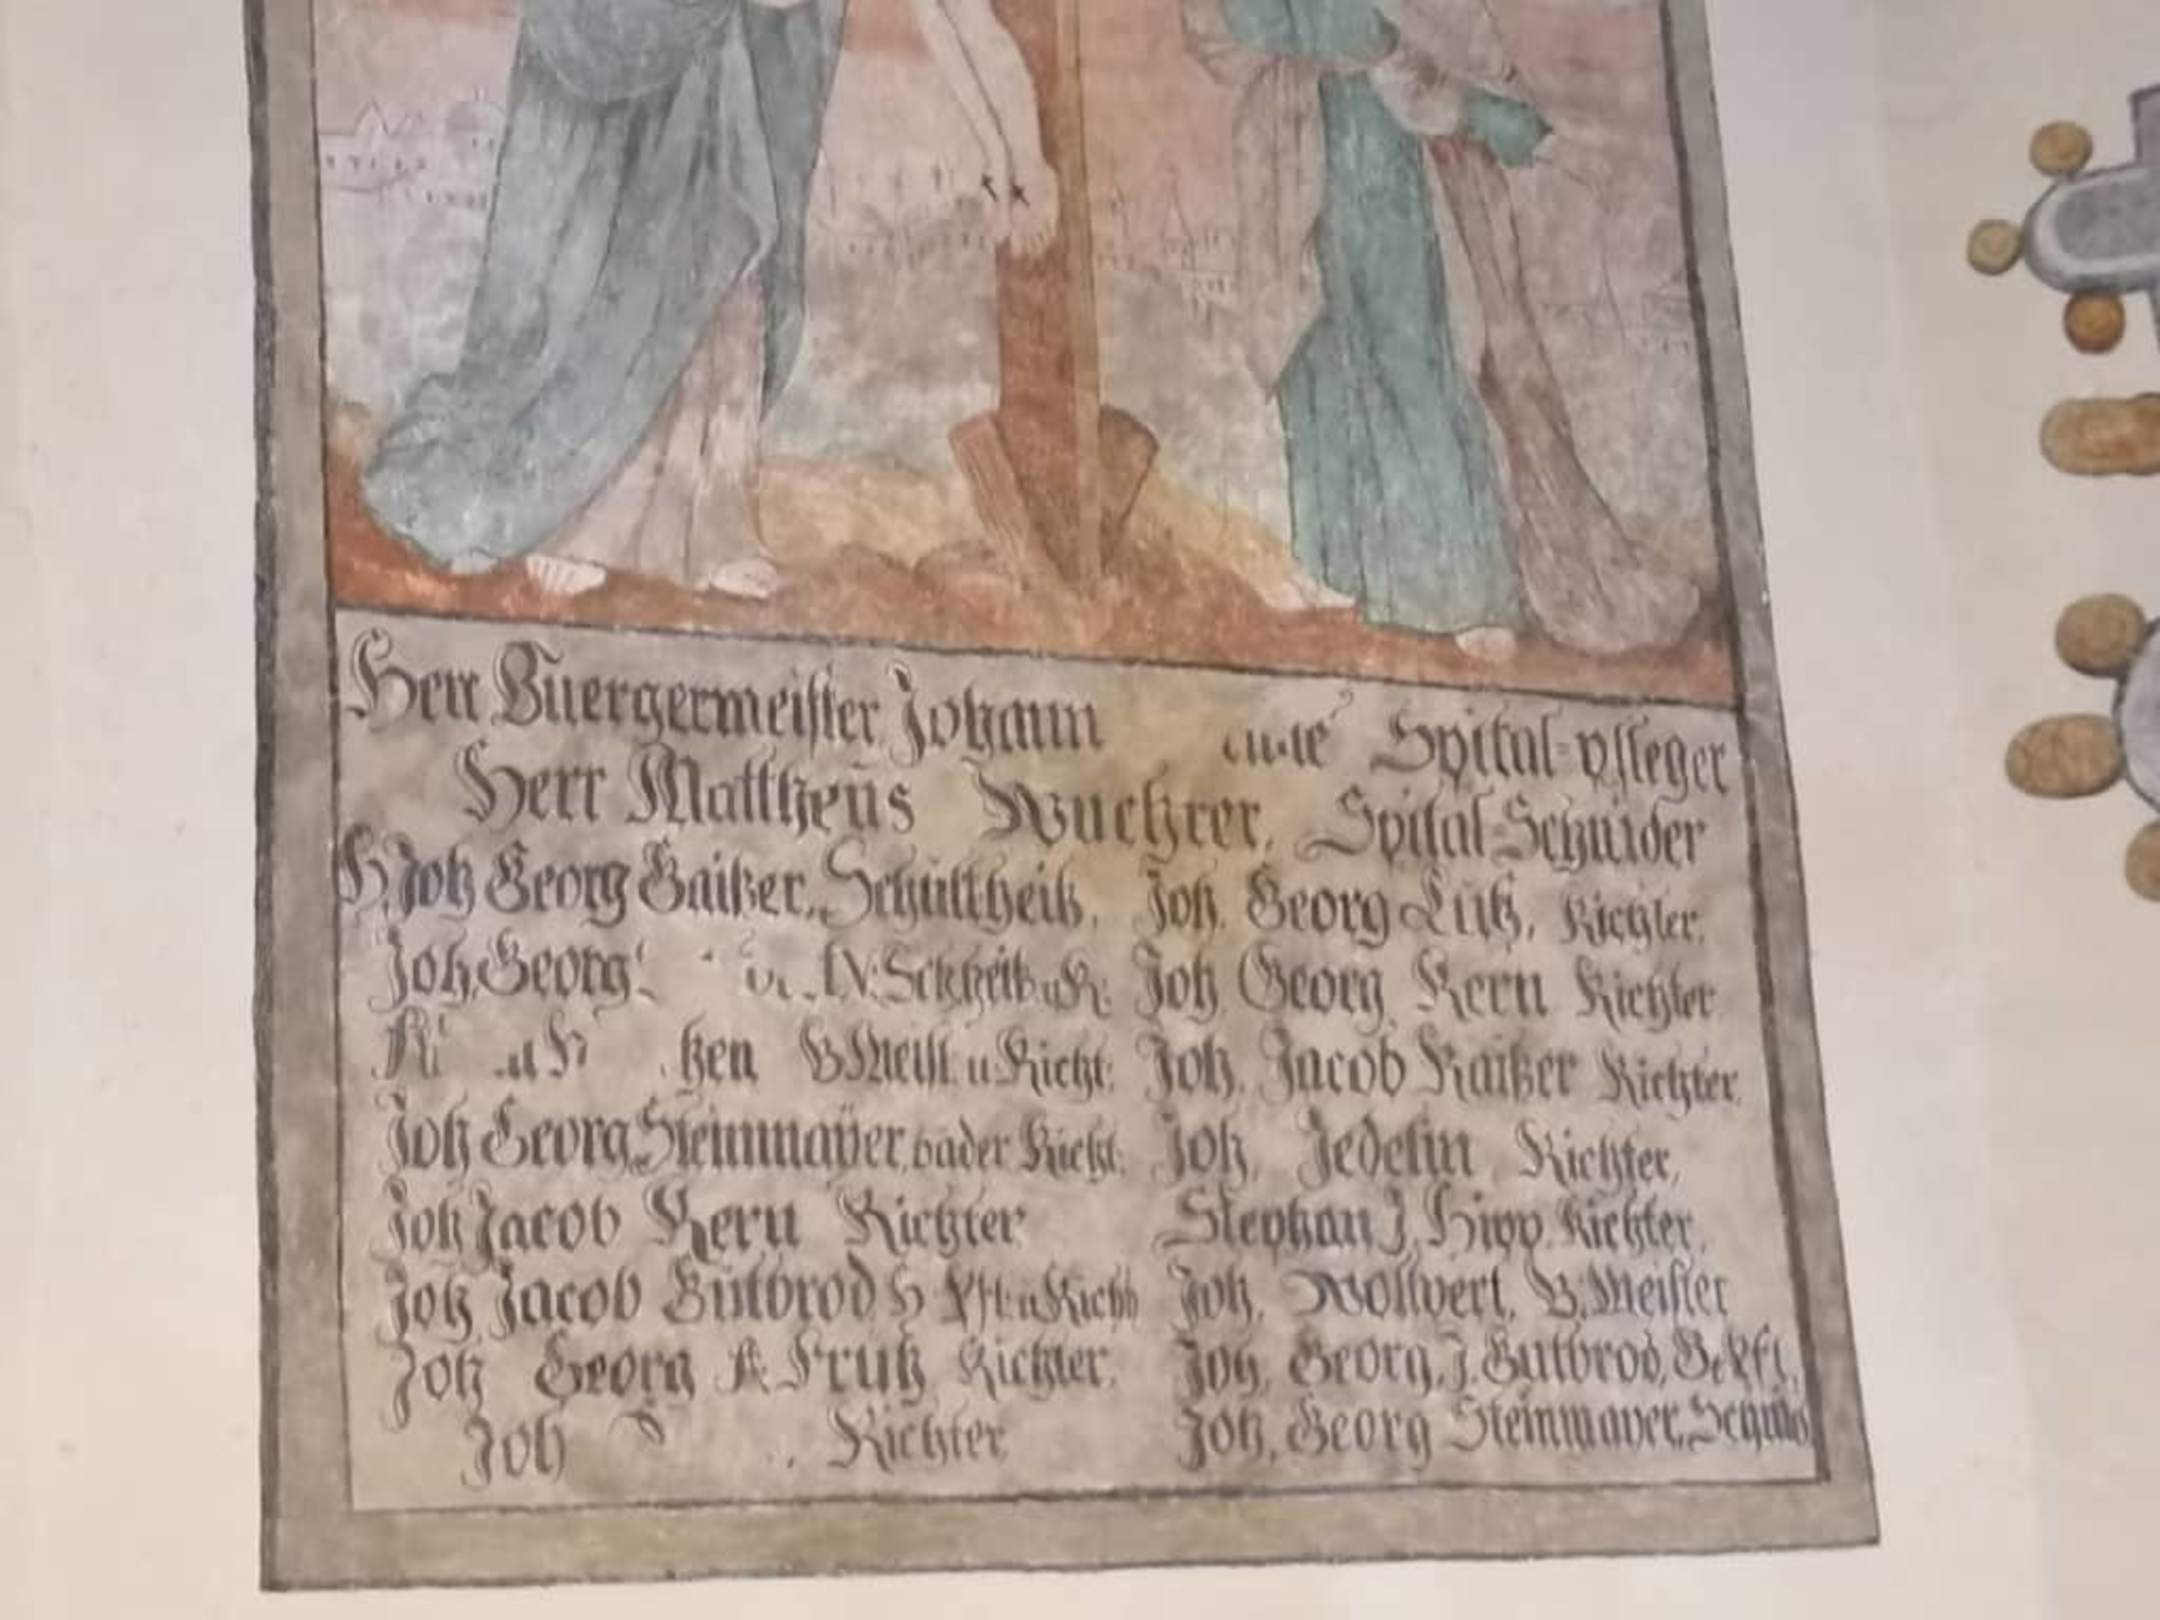 Herr Buergermeister Johann Spital=pfleger
Herr Mattheüs Wuehrer, Spital=Schnider
H. Joh Georg Gaißer, Schultheiß. Joh. Georg Lutz, Richter.
Joh. Georg Joh Georg Kern Richter
B.Meist. u Richt: Joh. Jacob Kaißer Richter.
Joh Georg Steinmaÿer, bader Richt. Joh. Jedelin, Richter,
Joh Jacob Kern Richter Stephan J. Hipp, Richter,
Joh Jacob Gutbrod Joh. Wolbert, B.Meister
Joh Georg A Frutz Richter, Joh. Georg. J. Gutbrod,
Joh Richter Joh. Georg Steinmaÿer,